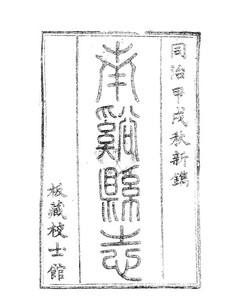 同治甲戌秋新鐫
南谿縣志
板藏校士館